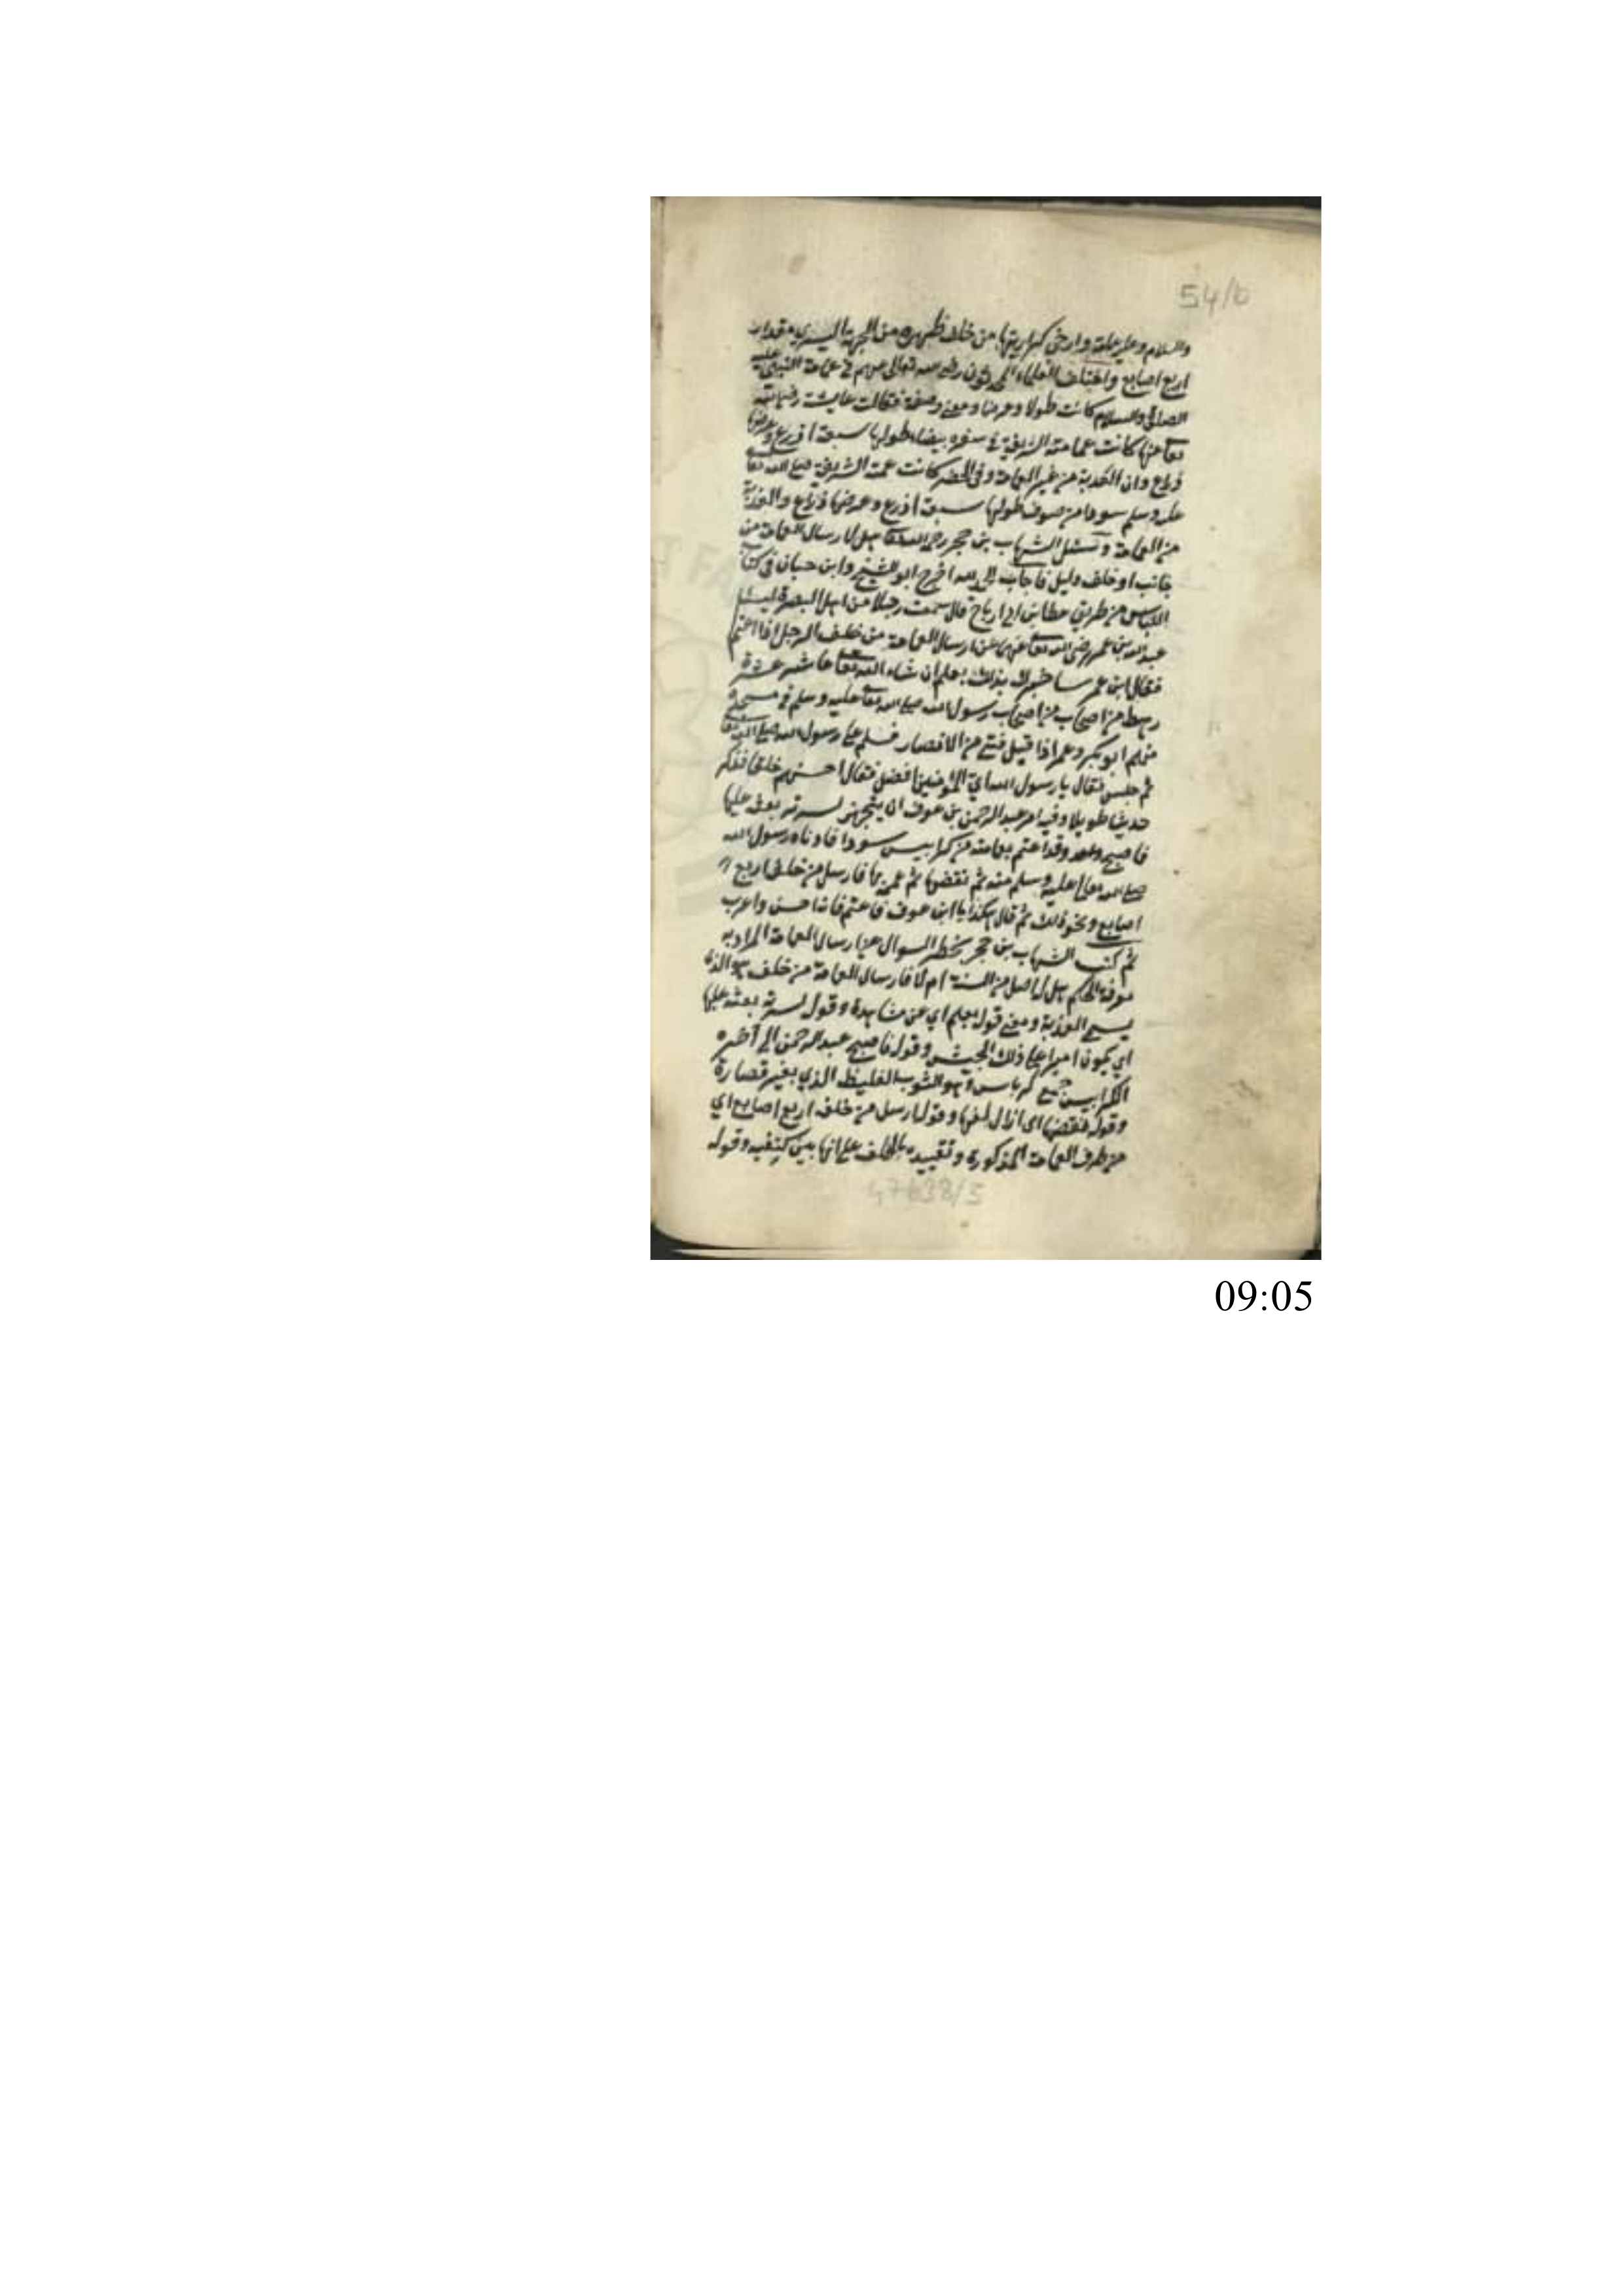 54/b
والسلام وعلي عليه وارخى كراريتها من خلف ظهره من الجهة اليسرى مقدار
اربع اصابع واختلف العلماء المحدثون رضي الله تعالى عنهم في عمامة النبي عليه
الصلاة والسلام كانت طولا وعرضا ومعنى وصفة فقالت عايشة رضي الله
تعا عنها كانت عمامته الشريفة في سفره بيضاء طولها سبعة اذرع وعرضها
ذراع وان العذبة من غير العمامة وفي الحضر كانت عمته الشريفة صلى الله تعا
عليه وسلم سودا من صوف طولها سبعة اذرع وعرضها ذراع والعذبة
من العمامة وسئل الشهاب بن حجر رحمه الله تعا هل لارسال العمامة من
جانب او خلف دليل فاجاب الحمد لله اخرج ابو الشيخ وابن حبان في كتاب
اللباس من طريق عطا بن ابي رباح قال سمعت رجلا من اهل البصرة ليسئل
عبد الله بن عمر رضي الله تعا عنهما عن ارسال العمامة من خلف الرجل اذا اعتم
فقال ابن عمر ساخبرك بذلك بعلم ان شاء الله تعا عاشر عشرة
رهط من اصحاب من اصحاب رسول الله صلى الله تعا عليه وسلم في مسجده
منهم ابو بكر وعمر اذا قبل فتى من الانصار فسلم على رسول الله صلى الله تعا
ثم جلس فقال يا رسول الله اي المؤمنين افضل فقال احسنهم خلقا فذكر
حديثا طويلا وفيه امر عبد الرحمن بن عوف ان يتجهز لسرته بعثه عليها
فاصبح وقد اعتم بعمامة من كرابيس سودا فادناه رسول الله
صلى الله تعالى عليه وسلم منه ثم نقضها ثم عممه بها فارسل من خلفه اربع
اصابع ونحو ذلك ثم قال هكذا يا ابن عوف فاعتم فانه احسن واعرب
ثم كتب الشهاب بن حجر بخطه السوال عن ارسال العمامة المراد به
معرفة الحكم هل له اصل من السنة ام لا فارسال العمامة من خلف هو الذي
يسمى العذبة ومعنى قوله بعلم اي عن مشاهدة وقوله لسرته بعثه عليها
اي يكون اميرا على ذلك الجيش وقوله فاصبح عبد الرحمن الى آخره
الكرابيس جمع كرباس هو الثوب الغليظ الذي بغير قصارة
وقوله فنقضها اي ازال لفها وقوله ارسل من خلف اربع اصابع اي
من طرف العمامة المذكورة وتقييده بالخلف على انها بين كتفيه وقوله
47638/5
09:05